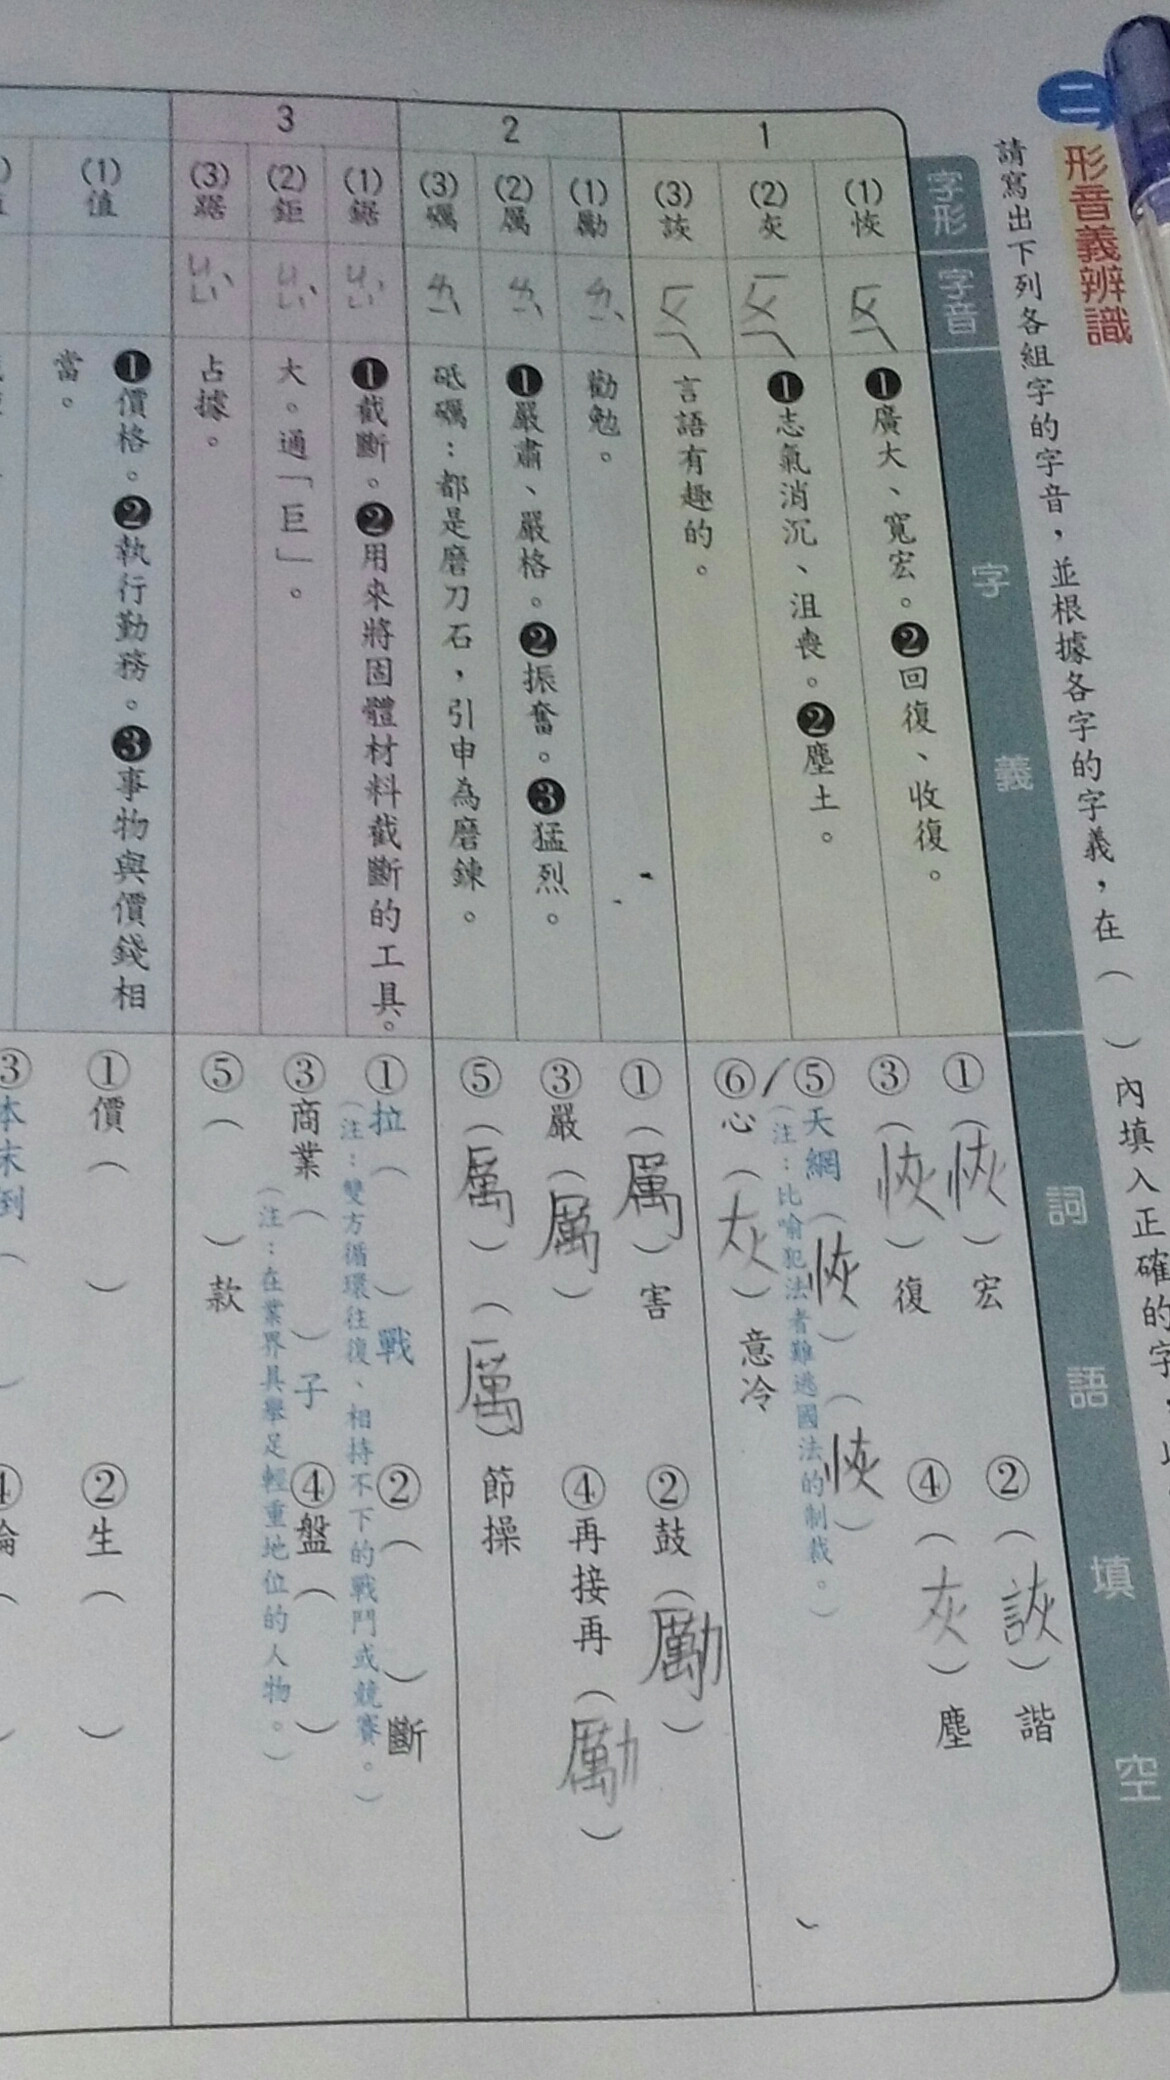 二、形音義辨識
請寫出下列各組字的字音，並根據各字的字義，在（ ）內填入正確的字
字形
字音
字義
詞語填空
1
(1)恢
ㄏㄨㄟ
❶廣大、寬宏。❷回復、收復。
(2)灰
ㄏㄨㄟ
❶志氣消沉、沮喪。❷塵土。
(3)詼
ㄏㄨㄟ
言語有趣的。
①（恢）宏
②（詼）諧
③（恢）復
④（灰）塵
⑤天網（恢）（恢）
（注：比喻犯法者難逃國法的制裁。）
⑥心（灰）意冷
2
(1)勵
ㄌㄧˋ
勸勉。
(2)厲
ㄌㄧˋ
❶嚴肅、嚴格。❷振奮。❸猛烈。
(3)礪
ㄌㄧˋ
砥礪：都是磨刀石，引申為磨鍊。
①（厲）害
②鼓（勵）
③嚴（厲）
④再接再（勵）
⑤（厲）（厲）節操
3
(1)鋸
ㄐㄩˋ
❶截斷。❷用來將固體材料截斷的工具。
(2)鉅
ㄐㄩˋ
大。通「巨」。
(3)踞
ㄐㄩˋ
占據。
①拉（ ）戰
（注：雙方循環往復、相持不下的戰鬥或競賽。）
②（ ）斷
③商業（ ）子
（注：在業界具舉足輕重地位的人物。）
④盤（ ）
⑤（ ）款
(1)值
❶價格。❷執行勤務。❸事物與價錢相
當。
①價（ ）
②生（ ）
③本末倒（
④